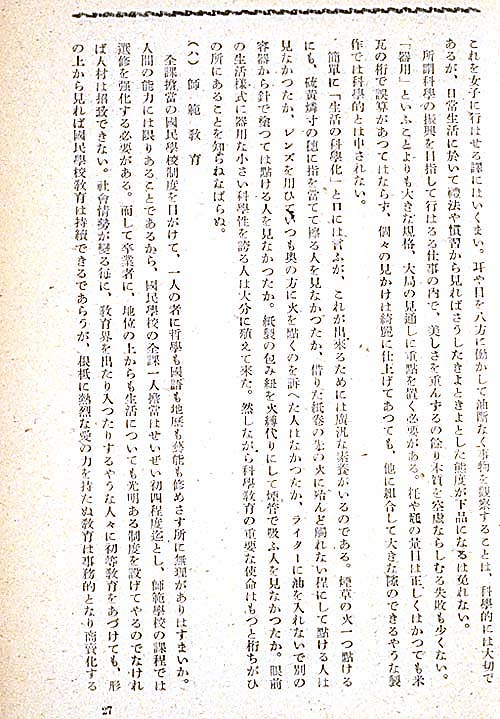 これを女子に行はせる譯にはいくまい。耳や目を八方に働かして油斷なく事物を觀察することは、科學的には大切で
あるが、日常生活に於いて禮法や慣習から見ればさうしたきよときよとした態度が下品になるは免れない。
所謂科學の振興を目指して行はるる仕事の內で、美しさを重んずるの餘り本質を空虛ならしむる失敗も少くない。
「器用」といふことよりも大きな規格、大局の見通しに重點を置く必要がある。托や瓲の量目は正しくはかつても米
瓦の桁で誤算があつてはならず、個々の見かけは綺麗に仕上げてあつても、他に組合して大きな隙のできるやうな製
作では科學的とは申されない。
簡單に「生活の科學化」と口には言ふが、これが出來るためには廣汎な素養がいるのである。煙草の火一つ點ける
にも、硫黃燐寸の穗に指を當てて擦る人を見なかつたか、借りた紙卷の先の火に殆んど觸れない程にして點ける人は
見なかつたか、レンズを用ひていつも奧の方に火を點くのを訴へた人はなかつたか、ライターに油を入れないで別の
容器から針で塗つては點ける人を見なかつたか。紙製の包み紐を火繩代りにして煙管で吸ふ人を見なかつたか。眼前
の生活樣式に器用な小さい科學性を誇る人は大分に殖えて來た。然しながら科學敎育の重要な使命はもつと桁ちがひ
の所にあることを知らねばならぬ。
(八) 師範敎育
全課擔當の國民學校制度を目がけて、一人の者に哲學も國語も地歷も藝能も修めさす所に無理がありはすまいか。
人間の能力には限りあることであるから、國民學校の全課一人擔當はせいぜい初四程度迄とし、師範學校の課程では
選修を强化する必要がある。而して卒業者に、地位の上からも生活についても光明ある制度を設けてやるのでなけれ
ば人材は招致できない。社會情勢が變る每に、敎育界を出たり入つたりするやうな人々に初等敎育をあづけても、形
の上から見れば國民學校敎育は持續できるであらうが、根柢に熱烈な愛の力を持たぬ敎育は事務的となり商賣化する
27